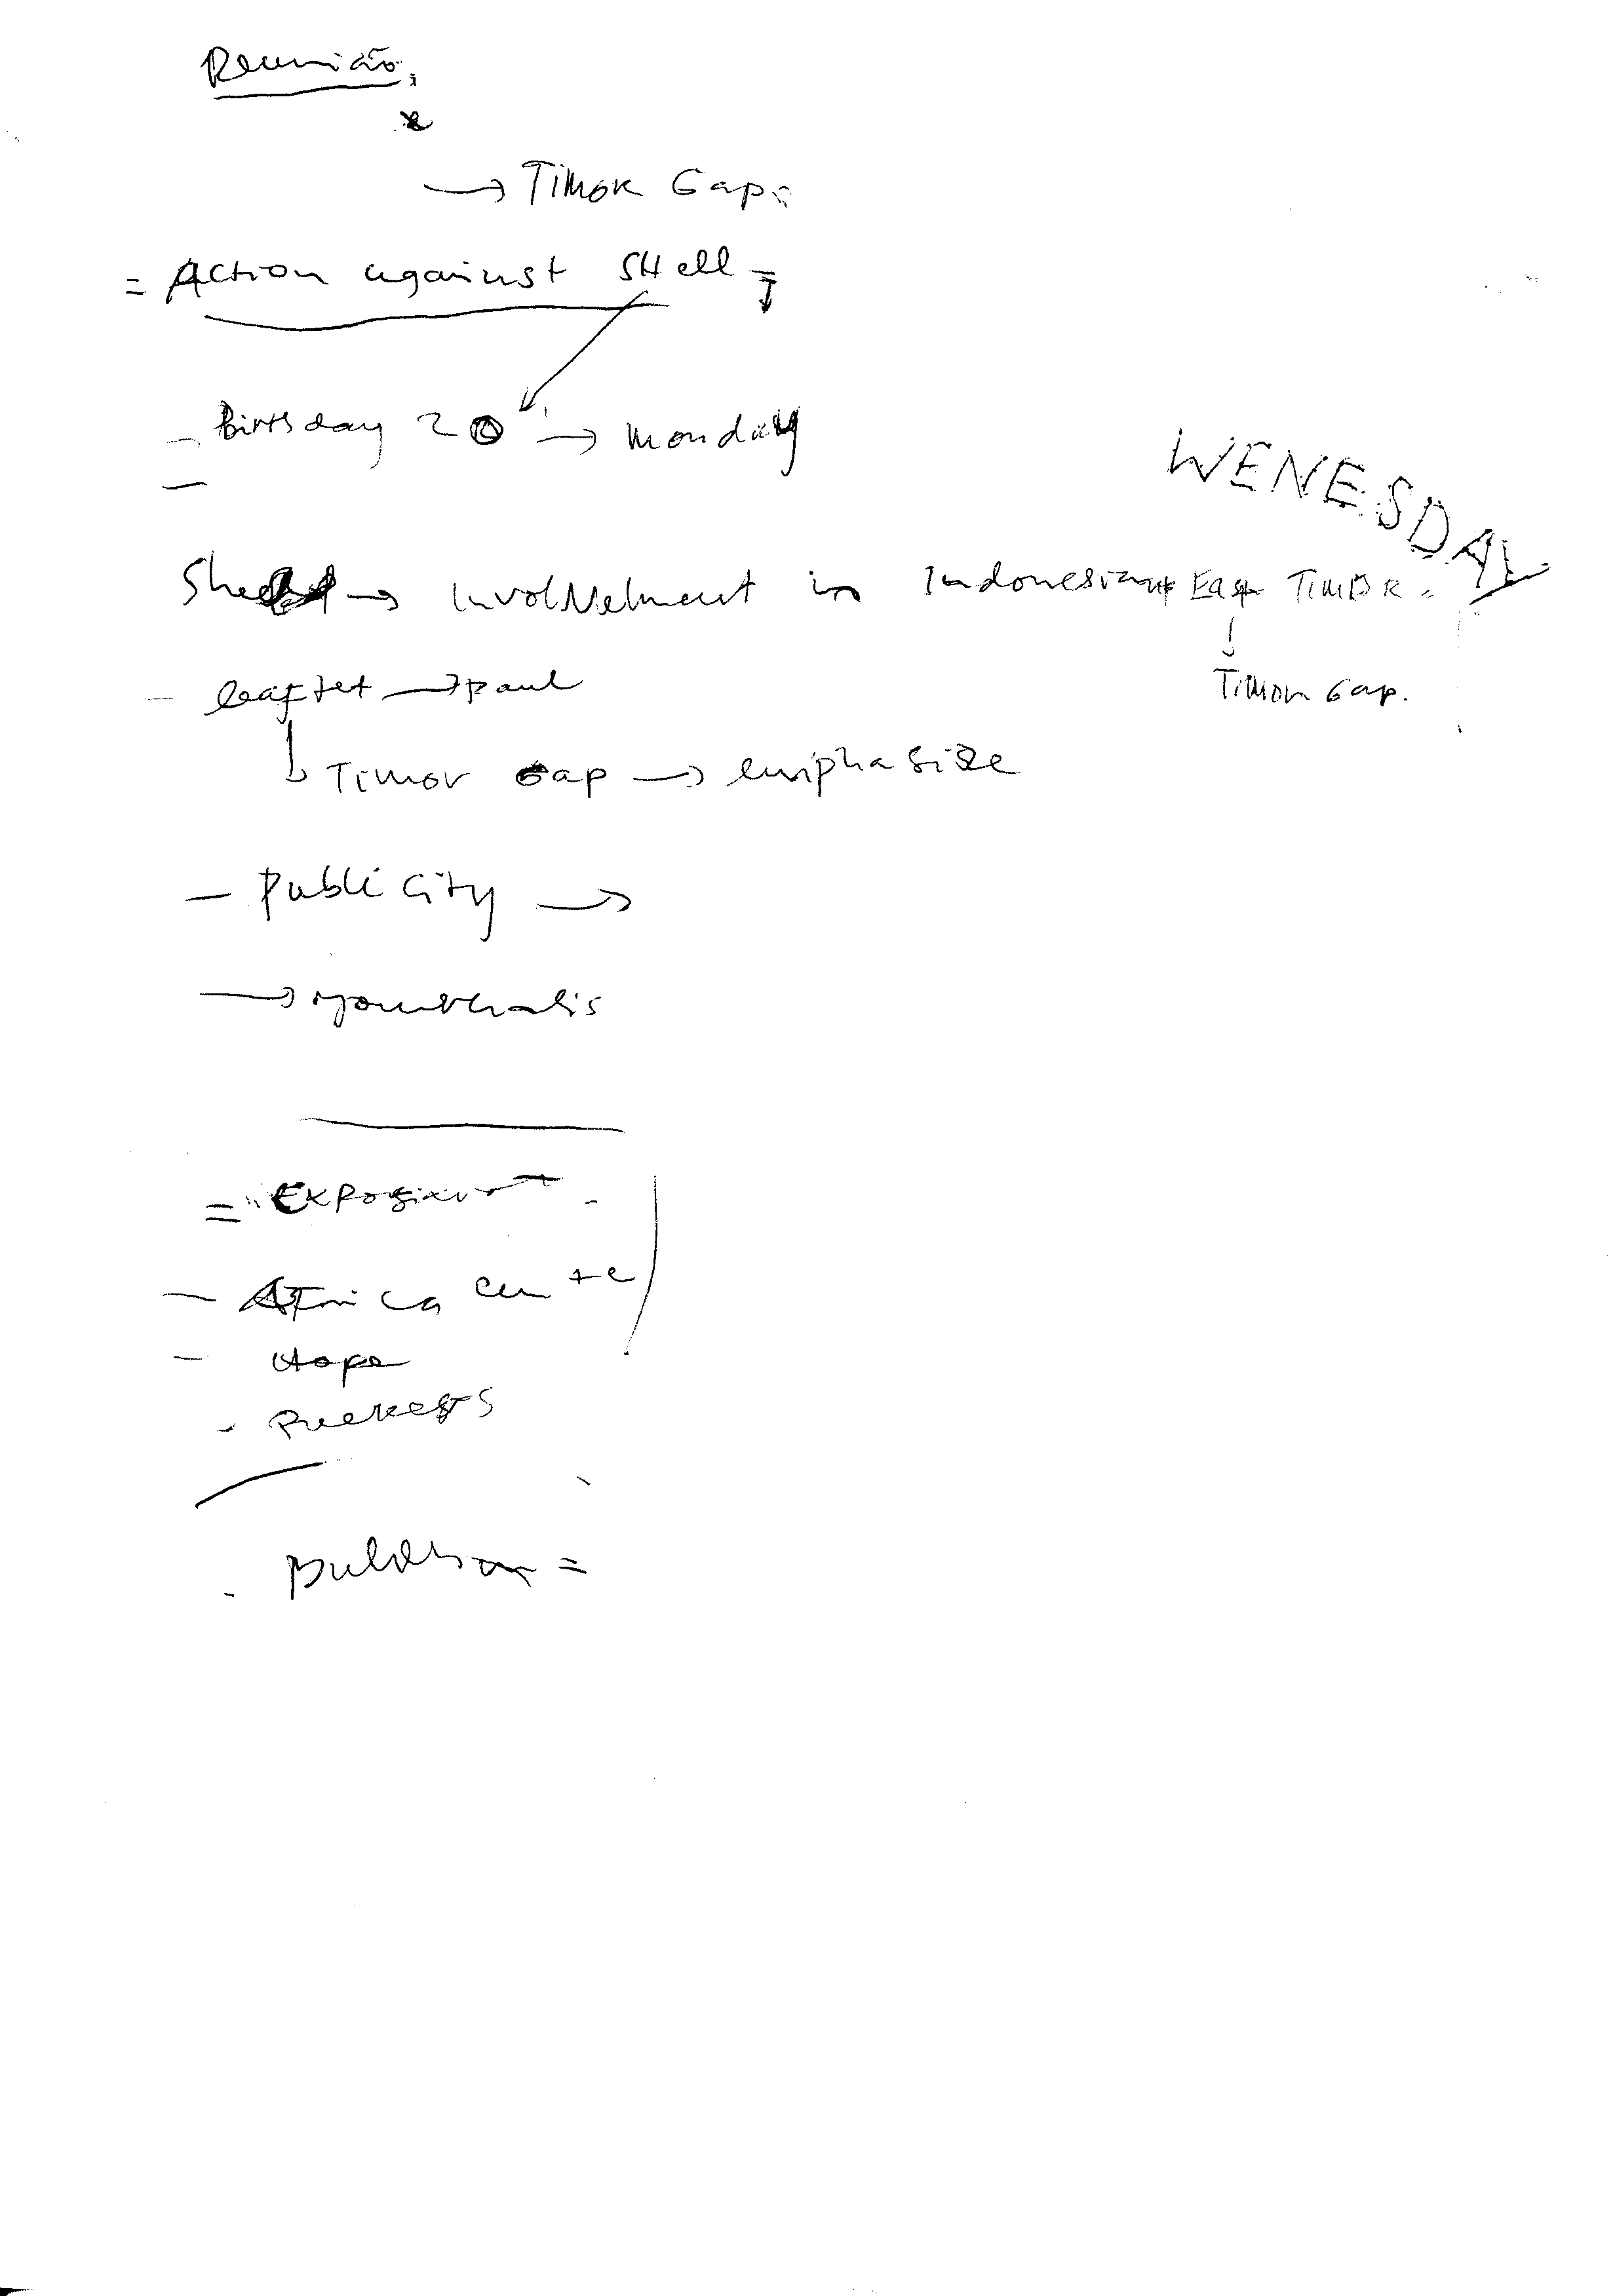 Reunião.
→ TiMOR Gap.
= Action against SHell
- Birtsday 20 → Monday
WENESDAY
Shell → InvolVelment in Indonesia + East TiMOR.
Timor Gap.
- leaflet → Paul
Timor Gap → emphasize
- Publicity →
→
=
- Africa cente
- Hope
-
-